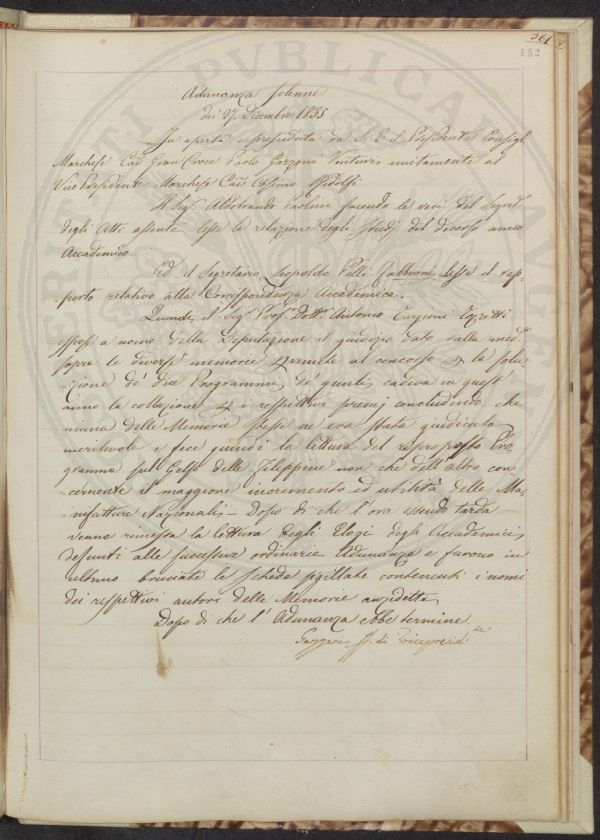 361
182
Adunanza Solenne
dei 27. Dicembre 1835
Fu aperta e presieduta da S. E. il Presidente Consigl.
Marchese Cav. Gran Croce Paolo Garzoni Venturi unitamente al
Vice Presidente Marchese Cav. Cosimo Ridolfi
Il Sig. Aldobrando Paolini facendo le veci del Segret.
degli Atti assente lesse la relazione degli Studj del decorso anno
Accademico
Ed il Segretario Leopoldo Pelli Fabbroni lesse il rap-
porto relativo alla Corrispondenza Accademica.
Quindi il Sig. Prof. Dott. Antonio Targioni Tozzetti
espose a nome della Deputazione il giudizio dato dalla med.
sopra le diverse memorie venute al concorso per la solu-
zione de' due Programmi, de' quali cadeva in quest'
anno la collazione per i respettivi premj concludendo che
niuna delle Memorie stesse ne era stata giudicata
meritevole e fece quindi la lettura del riproposto Pro-
gramma sul Gelso delle Filippine non che dell'altro con-
-cernente il maggiore incremento ed utilità delle Ma-
nifatture Nazionali - Dopo di che l'ora essendo tarda
venne rimessa la lettura degli Elogi degli Accademici
defunti alle successive ordinarie Adunanze e furono in
ultimo bruciate le schede sigillate contenenti i nomi
dei rispettivi autori delle Memorie anzidette
Dopo di che l'Adunanza ebbe termine.
Gazzeri ff. di Vicepresid.
PVBLICAE